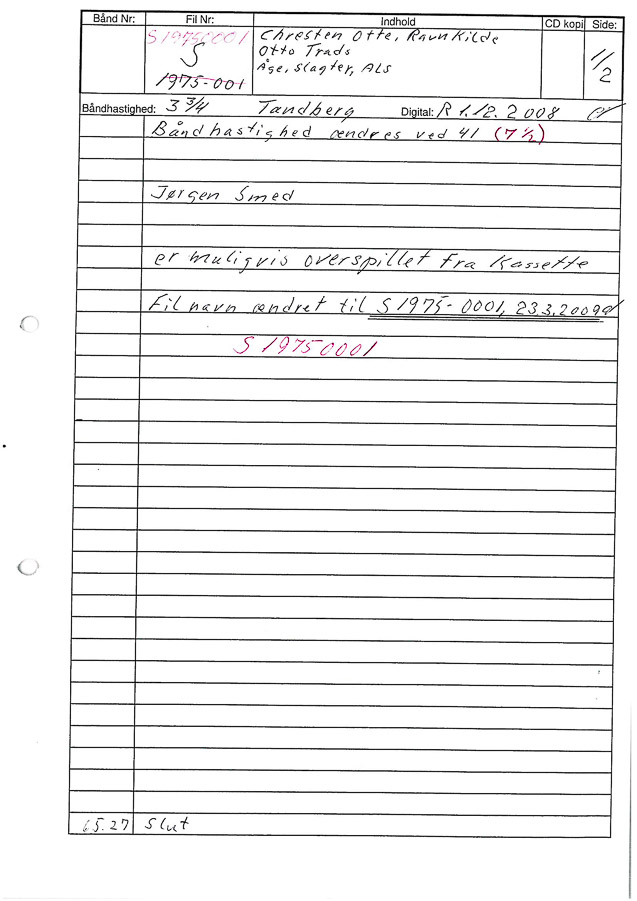 Bånd Nr: Fil Nr: Indhold CD kopi Side:
S19750001 Chresten Otte, Ravnkilde
S Otto Trads 1/2
1975-001 Åge, Slagter, ALS
Båndhastighed: 3 3/4 Tandberg Digital: R 1.12.2008
Båndhastighed ændres ved 41 (7½)
Jørgen Smed
er muligvis overspillet fra Kassette
Filnavn ændret til S1975-0001, 23.3.2009
S19750001
65.27 Slut